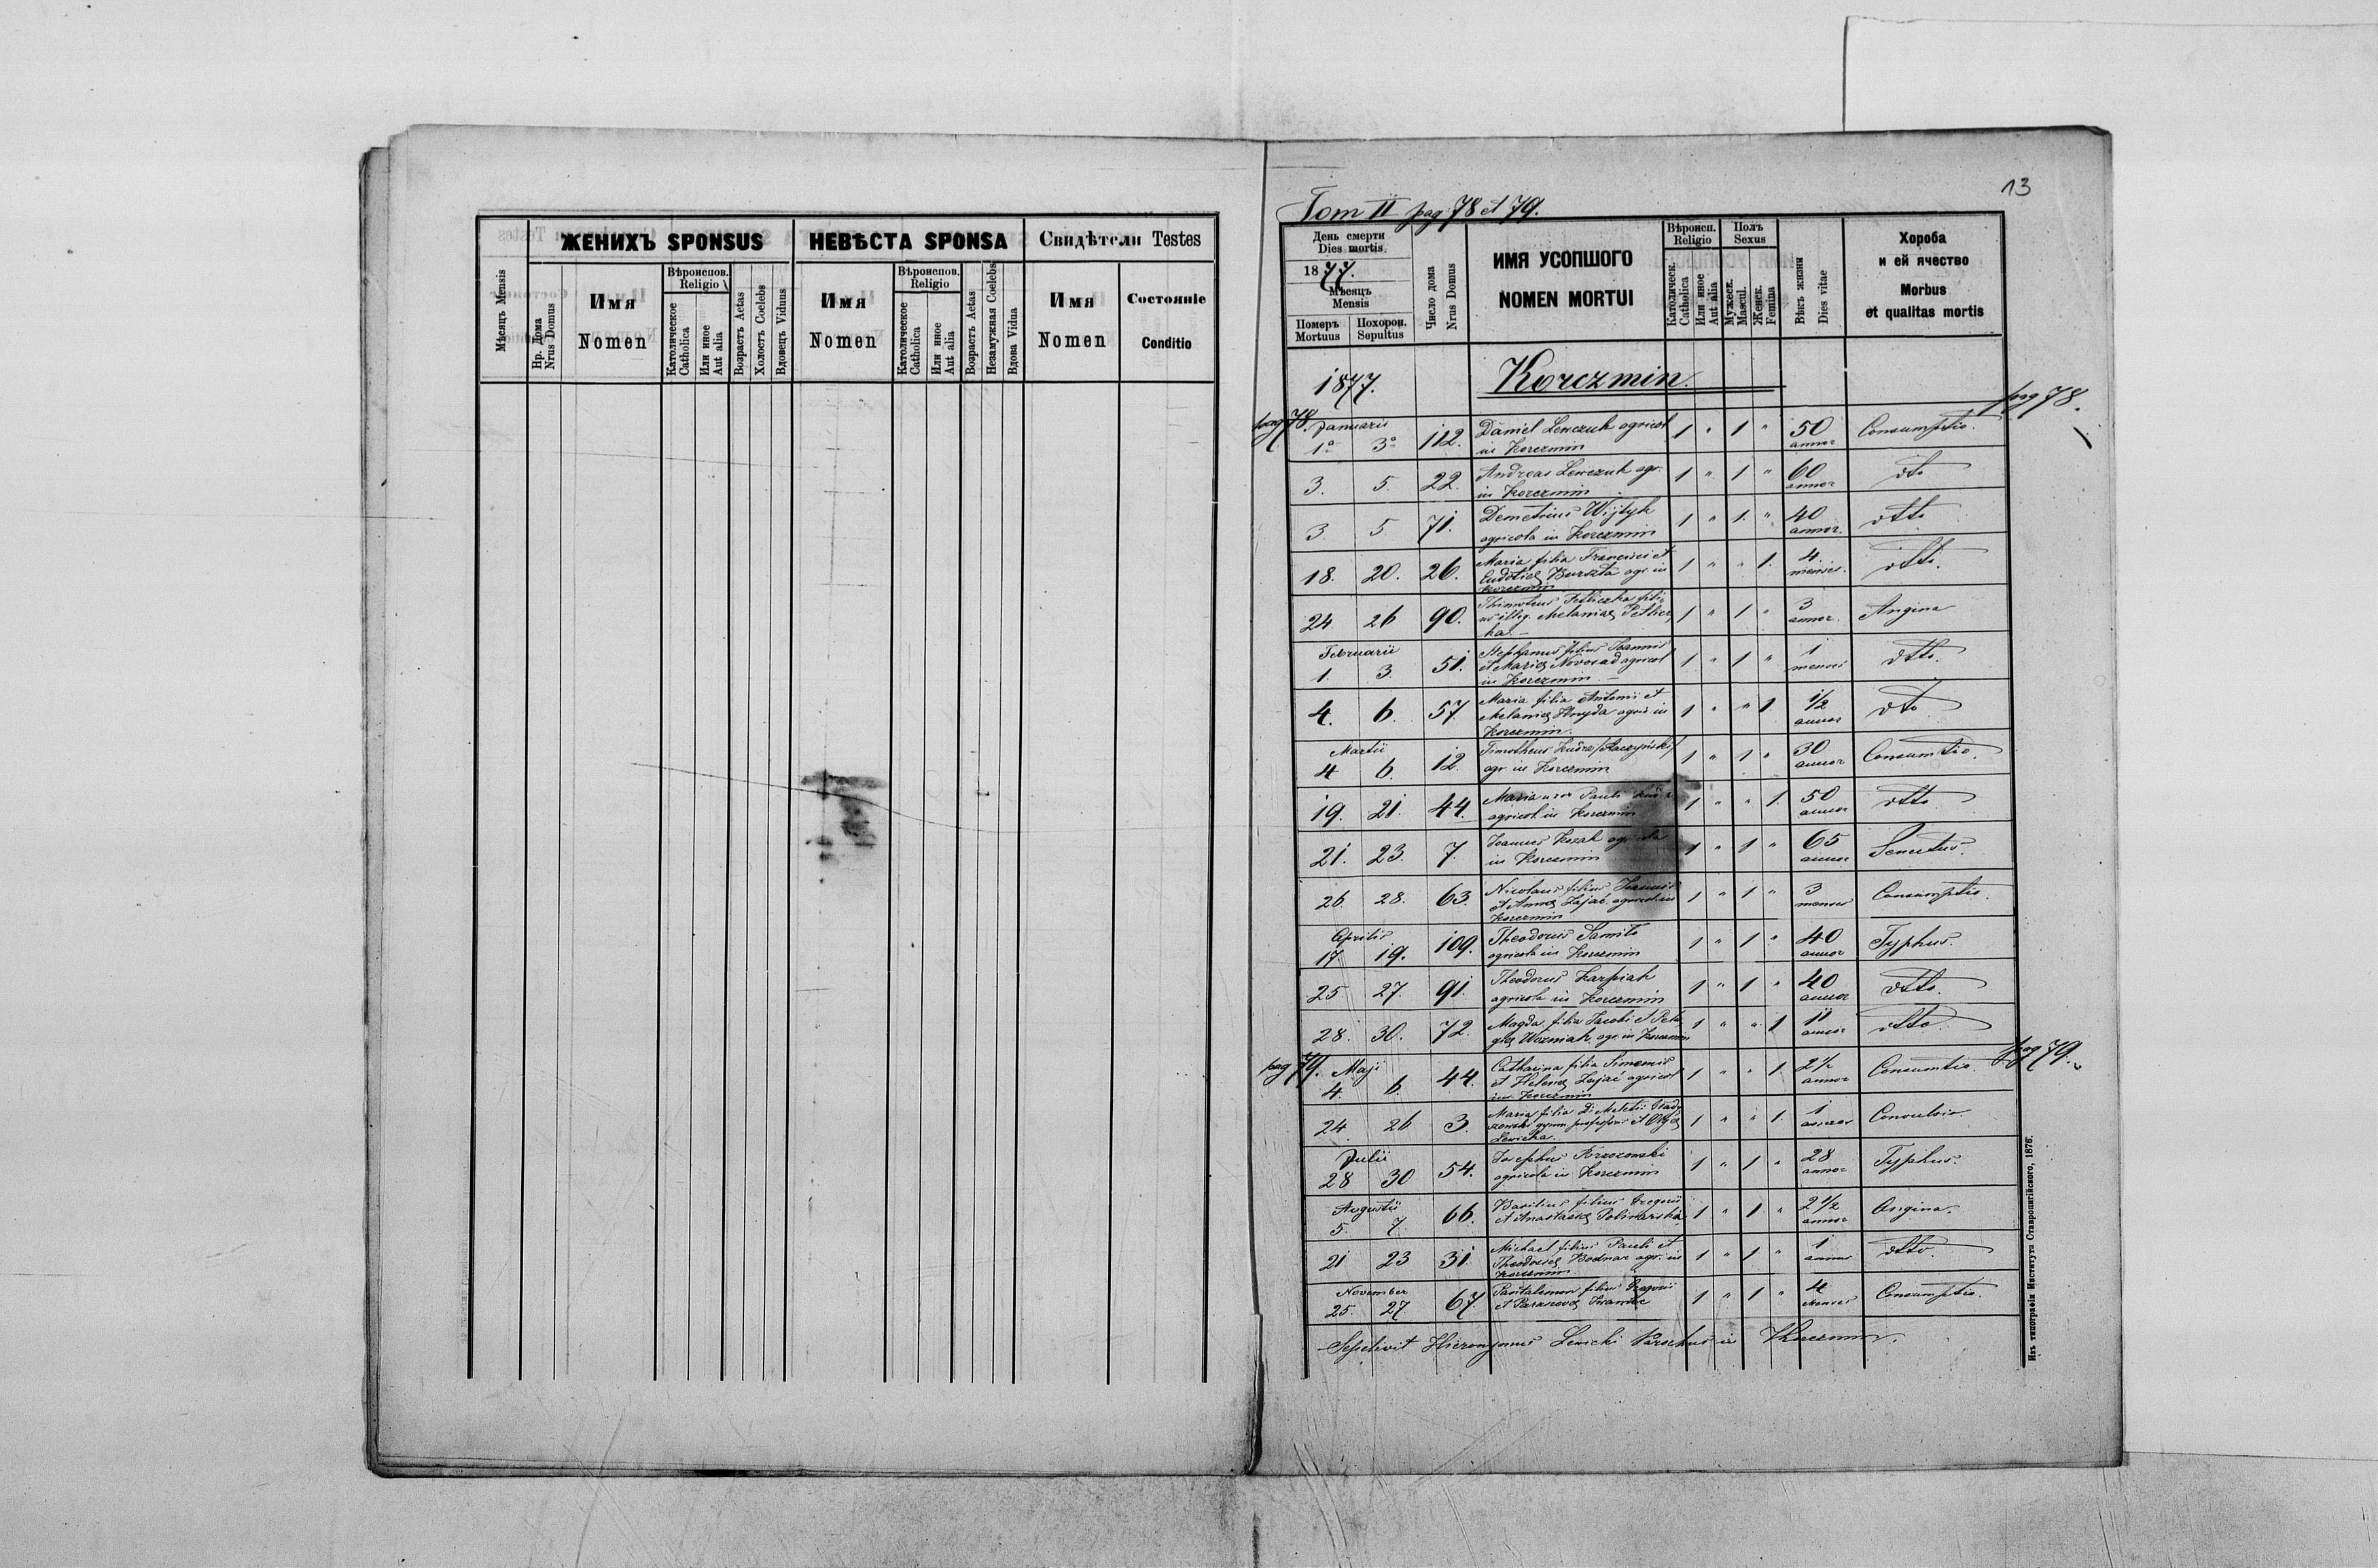 13
Tom II pag 78 et 79.
ЖЕНИХЪ SPONSUS
НЕВѢСТА SPONSA
Свидѣтели Testes
Мѣсяцъ Mensis
Нр. Дома
Nrus Domus
Имя
Nomen
Вѣроиспов.
Religio
Католическое
Catholica
Или иное
Aut alia
Возрастъ Aetas
Холостъ Coelebs
Вдовецъ Viduus
Имя
Nomen
Вѣроиспов.
Religio
Католическое
Catholica
Или иное
Aut alia
Возрастъ Aetas
Незамужная Coelebs
Вдова Vidua
Имя
Nomen
Состояніе
Conditio
День смерти
Dies mortis
1877.
Мѣсяцъ
Mensis
Померъ
Mortuus
Похорон.
Sepultus
Число дома
Nrus Domus
ИМЯ УСОПШОГО
NOMEN MORTUI
Вѣроисп.
Religio
Католическ.
Catholica
Или иное
Aut alia
Полъ
Sexus
Мужеск.
Mascul.
Женск.
Femina
Вѣкъ жизни
Dies vitae
Хороба
и ей ячество
Morbus
et qualitas mortis
1877. Korczmin.
pag 78. pag 78.
Januarii
1º 3º 112. Daniel Lewczuk agricol 1 " 1 " 50 Consumptio.
in Korczmin annor
3. 5. 22. Andreas Lewczuk agr. 1 " 1 " 60 dto
in Korczmin annor
3. 5. 71. Demetrius Wijtyk 1 " 1. " 40 dtto
agricola in Korczmin annor.
18. 20. 26. Maria filia Francisci et 1 " " 1. 4 dtto.
Eudoties Burszta agr. in menses.
Korczmin
24. 26 90. Thimoteus Petliczka fili 1 " 1 " 3 Angina
us illeg. Melanies Petlicz annor.
ka. –
Februarii
1. 3. 51. Stephanus filius Joannis 1 " 1 " 1 dtto.
et Maries Novosad agricol menses
in Korczmin –
4. 6. 57. Maria filia Antonii et 1 " " 1 1/2 dto
Melanies Hnyda agric in annor
Korczmin.
Martii
4 6. 12. Timotheus 1 " 1 " 30 Consumtio.
agr. in Korczmin annor
19. 21. 44. Maria uxor Pauli 1 " " 1. 50 dtto
agricol. in Korczmin annor
21. 23. 7. Joannes Kozak agricola 1 " 1 " 65 Senectus.
in Korczmin annor
26. 28. 63. Nicolaus filius Joannis 1 " 1 " 3 Consumptio.
et Annes Zajać agricol. in menses
Korczmin
Aprilis
17. 19. 109. Theodorus Samito 1 " 1 " 40 Typhus.
agricola in Korczmin annor
25. 27. 91. Theodorus Karpiak 1 " 1 " 40 dtto.
agricola in Korczmin annor
28. 30. 72. Magda filia Jacobi et Pela 1 " " 1 11 dtto.
gies Wozniak agr. in Korczmin annor
pag 79. pag 79.
Maji
4. 6. 44. Catharina filia Simeonis 1 " " 1. 2½ Consumtio.
et Helenes Zajać agricol annor
in Korczmin
24. 26 3. Maria filia Dr Meletii 1 " " 1. 1 Convulsio.
gymn. professoris et Olges
Lewicka.
Julii
28 30 54. Josephus 1 " 1 " 28 Typhus.
agricola in Korczmin annor
Augustii
5. 7. 66. Basilius filius Gregorii 1 " 1 " 2 1/2 Angina.
et Anastasies annor
21 23 31. Michael filius Pauli et 1 " 1 " 1 dtto.
Theodosies Bodnar agr. in annus
Korczmin
November
25. 27. 67. Pantalemon filius Gregorii 1 " 1 " 4 Consumptio.
et menses
Sepelivit Hieronymus Lewicki Parochus in Korczmin.
Изъ типографіи Института Ставропигійского, 1876.